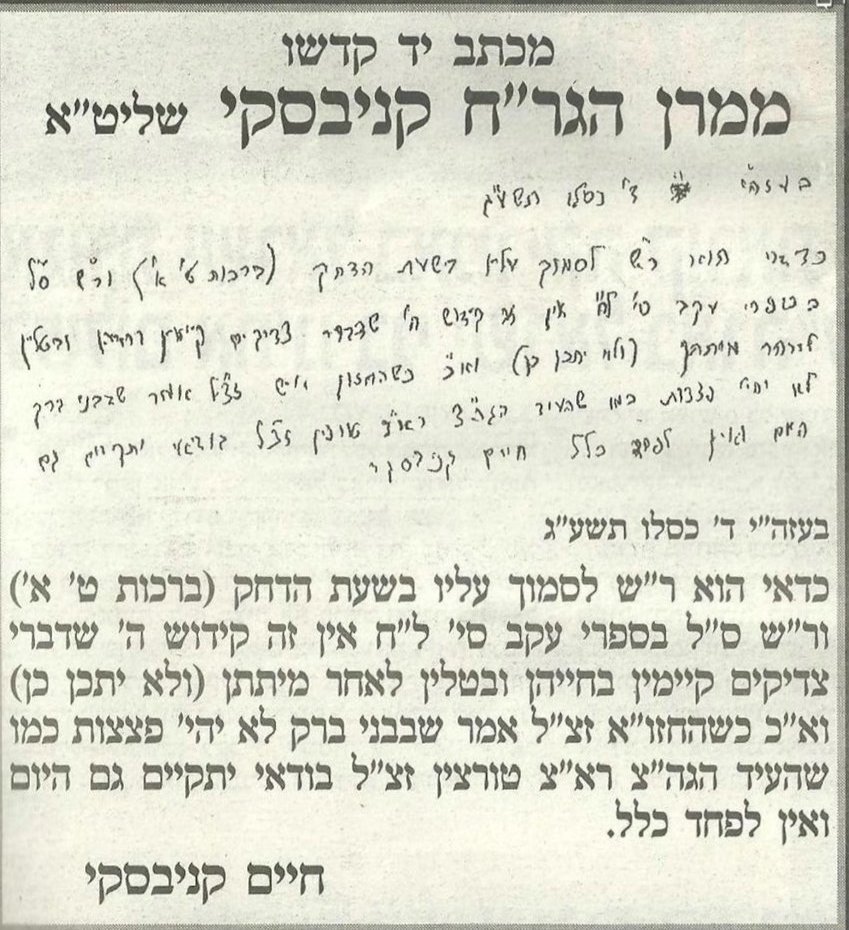 מכתב יד קדשו
ממרן הגר״ח קניבסקי שליט״א
בעזה״י ד' כסלו תשע״ג
כדאי הוא ר״ש לסמוך עליו בשעת הדחק (ברכות ט' א') ור״ש ס״ל
בספרי עקב סי' ל״ח אין זה קידוש ה' שדברי צדיקים קיימין בחייהן ובטלין
לאחר מיתתן (ולא יתכן כן) וא״כ כשהחזון איש זצ״ל אמר שבבני ברק
לא יהי' פצצות כמו שהעיד הגה״צ רא״צ טורצין זצ״ל בודאי יתקיים גם
היום ואין לפחד כלל חיים קניבסקי
בעזה״י ד' כסלו תשע״ג
כדאי הוא ר״ש לסמוך עליו בשעת הדחק (ברכות ט' א')
ור״ש ס״ל בספרי עקב סי' ל״ח אין זה קידוש ה' שדברי
צדיקים קיימין בחייהן ובטלין לאחר מיתתן (ולא יתכן כן)
וא״כ כשהחזו״א זצ״ל אמר שבבני ברק לא יהי' פצצות כמו
שהעיד הגה״צ רא״צ טורצין זצ״ל בודאי יתקיים גם היום
ואין לפחד כלל.
חיים קניבסקי